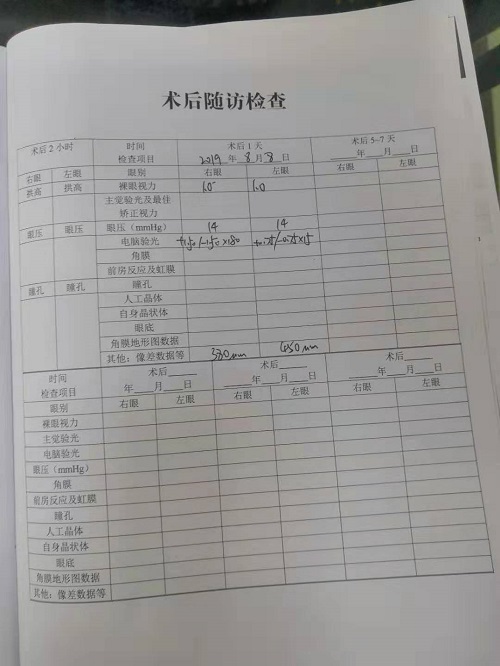 术后随访检查
术后2小时 时间 术后1天 术后5-7天
检查项目 2019年8月8日 ____年___月___日
右眼 左眼 眼别 右眼 左眼 右眼 左眼
拱高 拱高 裸眼视力 1.0 1.0
主觉验光及最佳
矫正视力
眼压 眼压 眼压（mmHg） 14 14
电脑验光 +1.50/-1.50×180 +0.75/-0.75×15
角膜
前房反应及虹膜
瞳孔 瞳孔 瞳孔
人工晶体
自身晶状体
眼底
角膜地形图数据
其他：像差数据等 um 450um
时间 术后____ 术后____ 术后____
检查项目 ____年___月___日 ____年___月___日 ____年___月___日
眼别 右眼 左眼 右眼 左眼 右眼 左眼
裸眼视力
主觉验光
电脑验光
眼压（mmHg）
角膜
前房反应及虹膜
瞳孔
人工晶体
自身晶状体
眼底
角膜地形图数据
其他：像差数据等